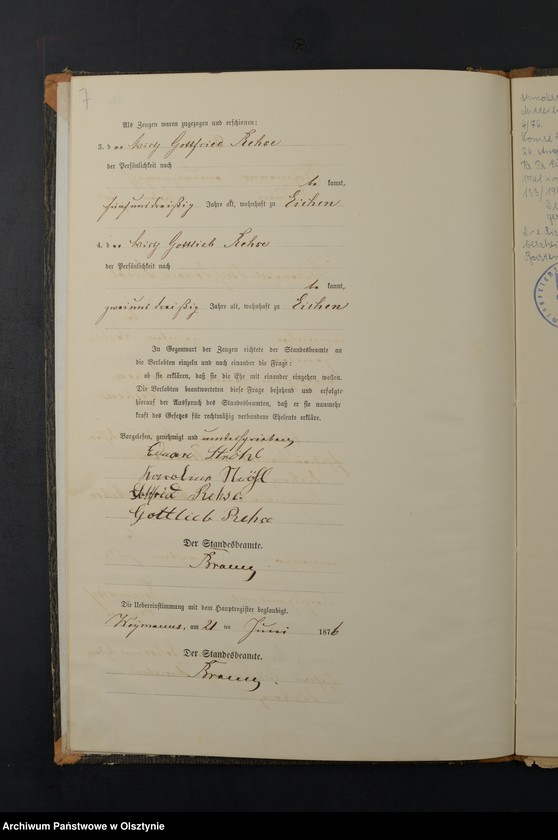 7
Als Zeugen waren zugezogen und erschienen:
3. der Wirth Gottfried Rehse
der Persönlichkeit nach
be kannt,
fünfunddreißig Jahre alt, wohnhaft zu Eichen
4. der Wirth Gottlieb Rehse
der Persönlichkeit nach
be kannt,
zweiunddreißig Jahre alt, wohnhaft zu Eichen
In Gegenwart der Zeugen richtete der Standesbeamte an
die Verlobten einzeln und nach einander die Frage:
ob sie erklären, daß sie die Ehe mit einander eingehen wollen.
Die Verlobten beantworteten diese Frage bejahend und erfolgte
hierauf der Ausspruch des Standesbeamten, daß er sie nunmehr
kraft des Gesetzes für rechtmäßig verbundene Eheleute erkläre.
Vorgelesen, genehmigt und unterschrieben
Eduard Ströhl
Gottfried Rehse
Gottlieb Rehse
Der Standesbeamte.
Die Uebereinstimmung mit dem Hauptregister beglaubigt.
am 21 ten Juni 1876
Der Standesbeamte.
Archiwum Państwowe w Olsztynie